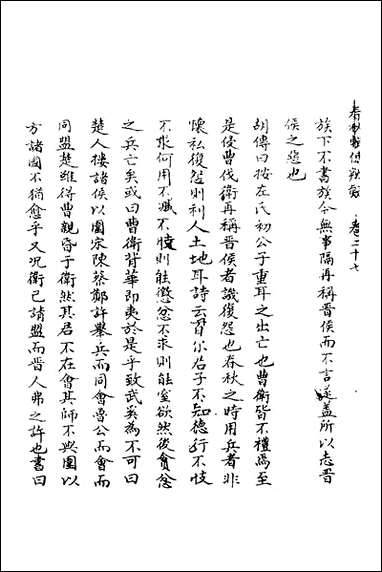 春秋輯傳辨疑 卷二十七
族下不書族今無事隔再稱晉侯而不言遂蓋所以志晉
侯之惡也
胡傳曰按左氏初公子重耳之出亡也曹衛皆不禮焉至
是侵曹伐衛再稱晉侯者譏復怨也春秋之時用兵者非
懷私復怨則利人土地耳詩云百尔君子不知德行不忮
不求何用不臧不忮則能懲忿不求則能窒欲然後貪忿
之兵亡矣或曰曹衛背華即夷於是乎致武奚為不可曰
楚人摟諸侯以圍宋陳蔡鄭許舉兵而同會魯公而會而
同盟楚雖得曹親昏于衛然其君不在會其師不與圍以
方諸國不猶愈乎又況衛已請盟而晉人弗之許也書曰